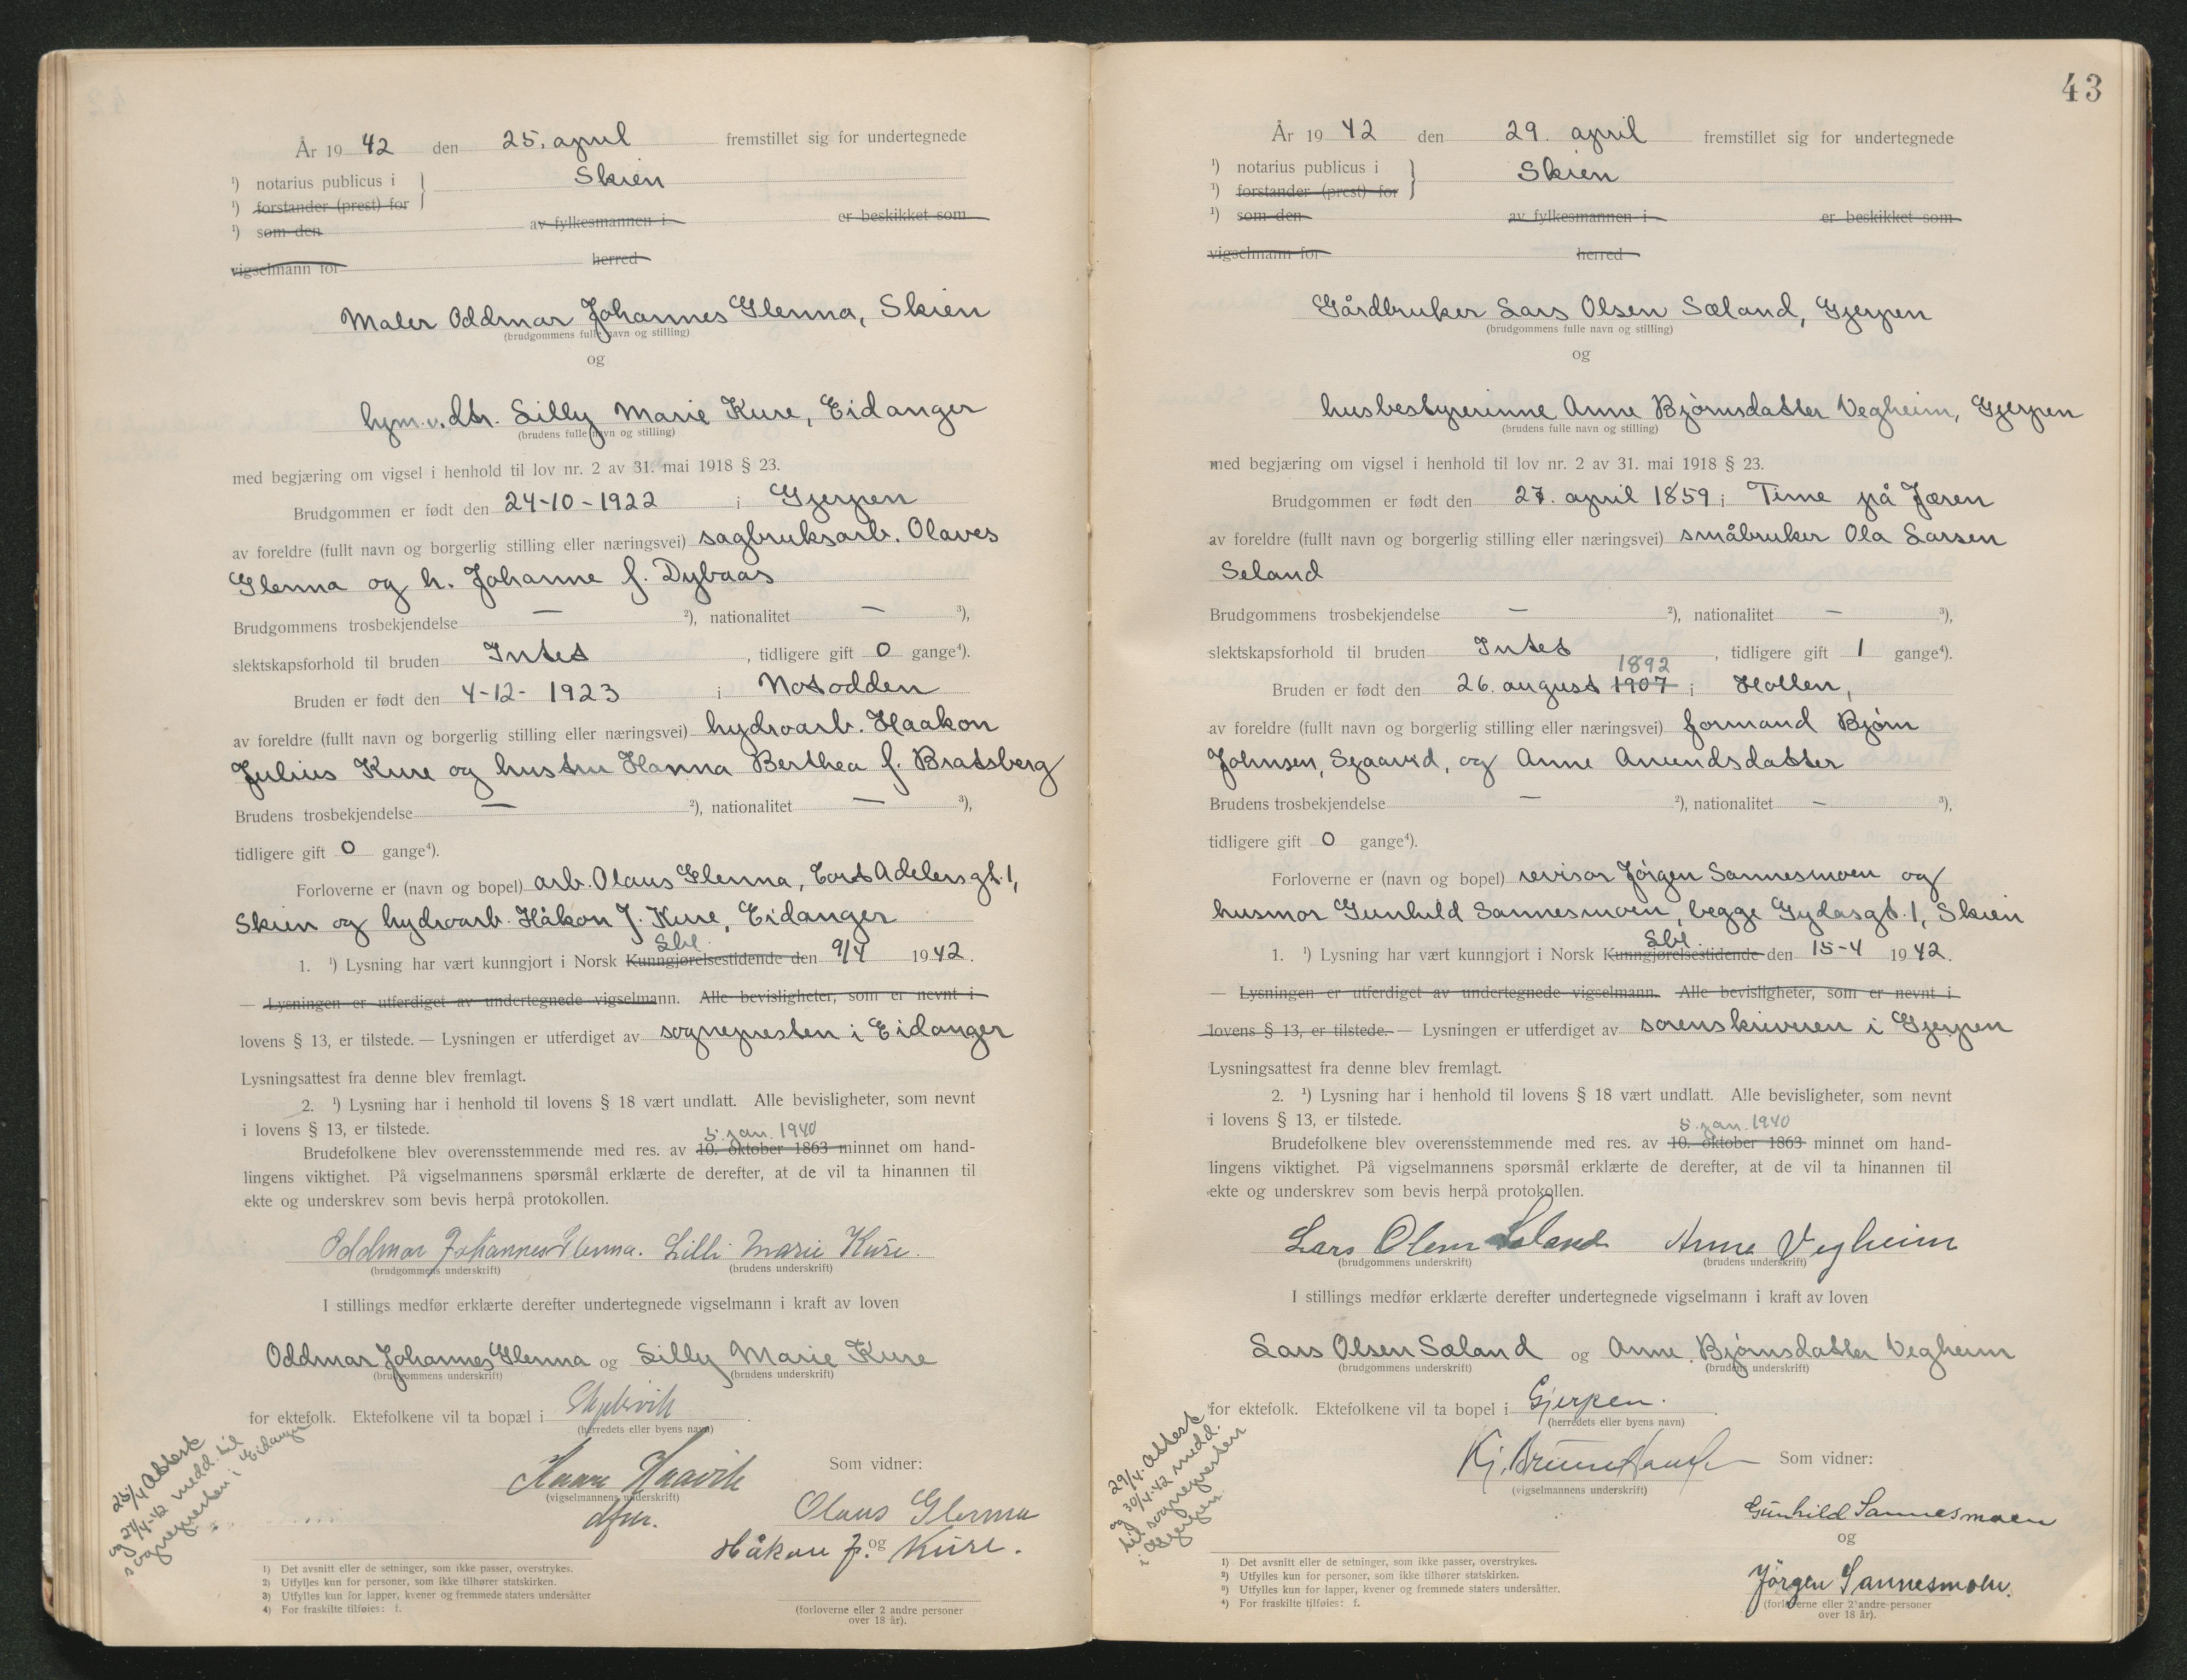 År 1942 den 25. april fremstillet sig for undertegnede
¹) notarius publicus i } Skien
¹) forstander (prest) for
¹) som den av fylkesmannen i er beskikket som
vigselmann for herred
Maler Oddmar Johannes Glenna, Skien
(brudgommens fulle navn og stilling)
og
hjm.v. dtr. Lilly Marie Kure, Eidanger
(brudens fulle navn og stilling)
med begjæring om vigsel i henhold til lov nr. 2 av 31. mai 1918 § 23.
Brudgommen er født den 24-10-1922 i Gjerpen
av foreldre (fullt navn og borgerlig stilling eller næringsvei) sagbruksarb. Olaves
Glenna og h. Johanne f. Dybaas
Brudgommens trosbekjendelse — ²), nationalitet — ³),
slektskapsforhold til bruden Intet, tidligere gift 0 gange⁴).
Bruden er født den 4-12-1923 i Notodden
av foreldre (fullt navn og borgerlig stilling eller næringsvei) hydroarb. Haakon
Julius Kure og hustru Hanna Berthea f. Bratsberg
Brudens trosbekjendelse — ²), nationalitet — ³),
tidligere gift 0 gange⁴).
Forloverne er (navn og bopel) arb. Olaus Glenna, Cort Adelersgt. 1,
Skien og hydroarb. Håkon J. Kure, Eidanger
Sbl.
1. ¹) Lysning har vært kunngjort i Norsk Kunngjørelsestidende den 9/4 1942.
— Lysningen er utferdiget av undertegnede vigselmann. Alle bevisligheter, som er nevnt i
lovens § 13, er tilstede. — Lysningen er utferdiget av sognepresten i Eidanger
Lysningsattest fra denne blev fremlagt.
2. ¹) Lysning har i henhold til lovens § 18 vært undlatt. Alle bevisligheter, som nevnt
i lovens § 13, er tilstede.
5. jan. 1940
Brudefolkene blev overensstemmende med res. av 10. oktober 1863 minnet om hand-
lingens viktighet. På vigselmannens spørsmål erklærte de derefter, at de vil ta hinannen til
ekte og underskrev som bevis herpå protokollen.
Oddmar Johannes Glenna. Lilli Marie Kure.
(brudgommens underskrift) (brudens underskrift)
I stillings medfør erklærte derefter undertegnede vigselmann i kraft av loven
Oddmar Johannes Glenna og Lilly Marie Kure
(brudgommens underskrift) (brudens underskrift)
for ektefolk. Ektefolkene vil ta bopæl i
(herredets eller byens navn)
Haavik Som vidner:
(vigselmannens underskrift)
dfm.
Olaus Glenna
og
Håkon J. Kure.
25/4 Attest
og 27/4-42 medd. til
sognepresten i Eidanger
1) Det avsnitt eller de setninger, som ikke passer, overstrykes.
2) Utfylles kun for personer, som ikke tilhører statskirken.
3) Utfylles kun for lapper, kvener og fremmede staters undersåtter
4) For fraskilte tilføies: f.
(forloverne eller 2 andre personer
over 18 år).
43
År 1942 den 29. april fremstillet sig for undertegnede
¹) notarius publicus i } Skien
¹) forstander (prest) for
¹) som den av fylkesmannen i er beskikket som
vigselmann for herred
Gårdbruker Lars Olsen Sæland, Gjerpen
(brudgommens fulle navn og stilling)
og
husbestyrerinne Anne Bjørnsdatter Vegheim, Gjerpen
(brudens fulle navn og stilling)
med begjæring om vigsel i henhold til lov nr. 2 av 31. mai 1918 § 23.
Brudgommen er født den 27. april 1859 i Time på Jæren
av foreldre (fullt navn og borgerlig stilling eller næringsvei) småbruker Ola Larsen
Seland
Brudgommens trosbekjendelse — ²), nationalitet — ³),
slektskapsforhold til bruden Intet, tidligere gift 1 gange⁴).
1892
Bruden er født den 26. august 1907 i Hollen,
av foreldre (fullt navn og borgerlig stilling eller næringsvei) formand Bjørn
Johnsen, og Anne Amundsdatter
Brudens trosbekjendelse — ²), nationalitet — ³),
tidligere gift 0 gange⁴).
Forloverne er (navn og bopel) revisor Jørgen Sannesmoen og
husmor Gunhild Sannesmoen, begge Gydasgt. 1, Skien
Sbl.
1. ¹) Lysning har vært kunngjort i Norsk Kunngjørelsestidende den 15-4 1942.
— Lysningen er utferdiget av undertegnede vigselmann. Alle bevisligheter, som er nevnt i
lovens § 13, er tilstede. — Lysningen er utferdiget av sorenskriveren i Gjerpen
Lysningsattest fra denne blev fremlagt.
2. ¹) Lysning har i henhold til lovens § 18 vært undlatt. Alle bevisligheter, som nevnt
i lovens § 13, er tilstede.
5. jan. 1940
Brudefolkene blev overensstemmende med res. av 10. oktober 1863 minnet om hand-
lingens viktighet. På vigselmannens spørsmål erklærte de derefter, at de vil ta hinannen til
ekte og underskrev som bevis herpå protokollen.
Lars Olsen Seland Anne Vegheim
(brudgommens underskrift) (brudens underskrift)
I stillings medfør erklærte derefter undertegnede vigselmann i kraft av loven
Lars Olsen Sæland og Anne Bjørnsdatter Vegheim
(brudgommens underskrift) (brudens underskrift)
for ektefolk. Ektefolkene vil ta bopel i Gjerpen.
(herredets eller byens navn)
Som vidner:
(vigselmannens underskrift)
Gunhild Sannesmoen
og
Jörgen Sannesmoen.
29/4. Attest
og 30/4-42 medd.
til sognepresten
i Gjerpen.
1) Det avsnitt eller de setninger, som ikke passer, overstrykes.
2) Utfylles kun for personer, som ikke tilhører statskirken.
3) Utfylles kun for lapper, kvener og fremmede staters undersåtter.
4) For fraskilte tilføies: f.
(forloverne eller 2 andre personer
over 18 år).